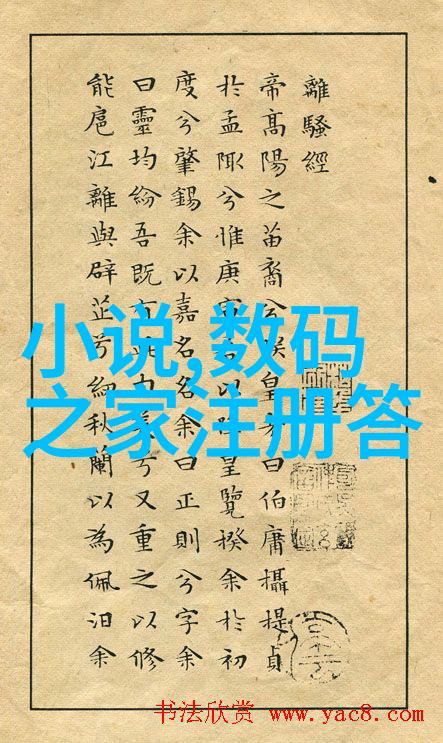 離騷經
帝高陽之苗裔兮朕皇考曰伯庸攝提貞
於孟陬兮惟庚寅吾以降皇覽揆余於初
度兮肇錫余以嘉名名余曰正則兮字余
曰靈均紛吾既有此內美兮又重之以修
能扈江離與辟芷兮紉秋蘭以為佩汨余
小说,数码
之家注册答
书法欣赏 www.yac8.com